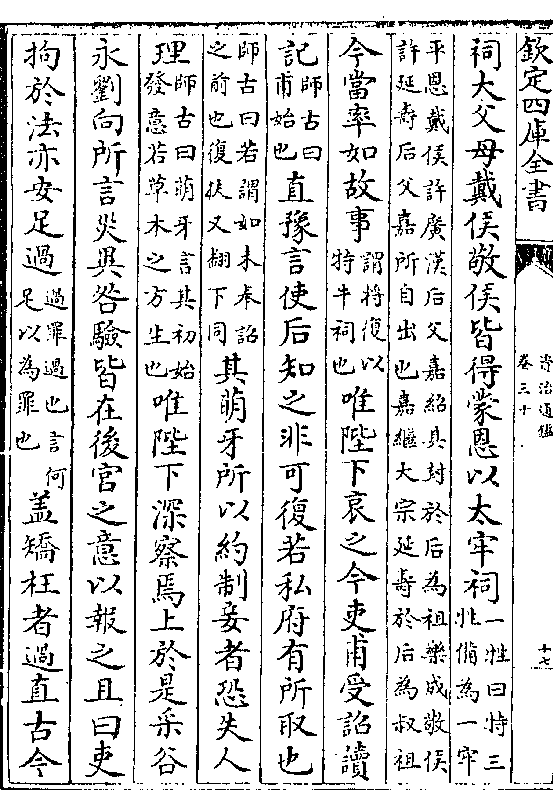 欽定四庫全書
資治通鑑
卷三十
十七
祠大父母戴侯敬侯皆得蒙恩以太牢祠一牲曰特三牲備為一牢
平恩戴侯許廣漢后父嘉紹其封於后為祖樂成敬侯
許延壽后父嘉所自出也嘉繼大宗延壽於后為叔祖
今當率如故事謂將復以特牛祠也唯陛下哀之今吏甫受詔讀
記師古曰甫始也直豫言使后知之非可復若私府有所取也
師古曰若謂如未奉詔之前也復扶又翻下同其萌牙所以約制妾者恐失人
理師古曰萌牙言其初始發意若草木之方生也唯陛下深察焉上於是采谷
永劉向所言災異咎驗皆在後宮之意以報之且曰吏
拘於法亦安足過過罪過也言何足以為罪也蓋矯枉者過直古今